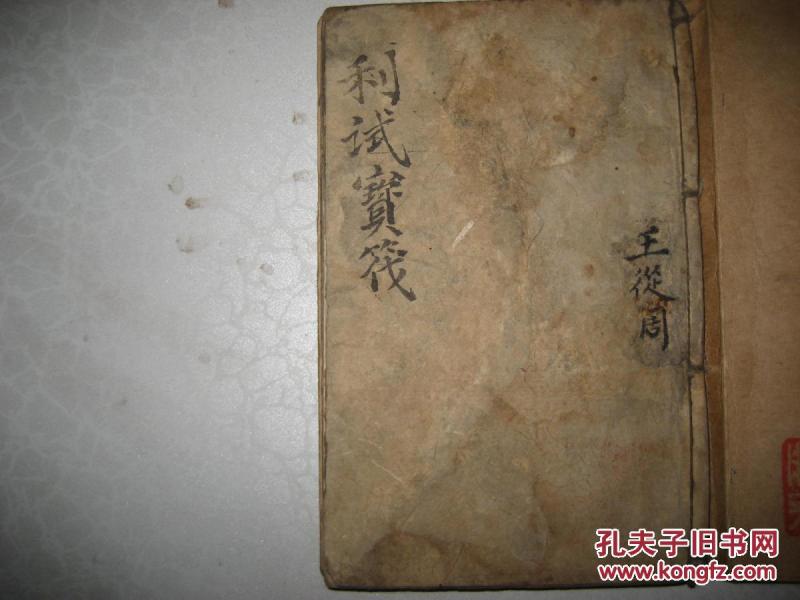 利試寶筏
王從周
孔夫子旧书网
www.kongfz.com